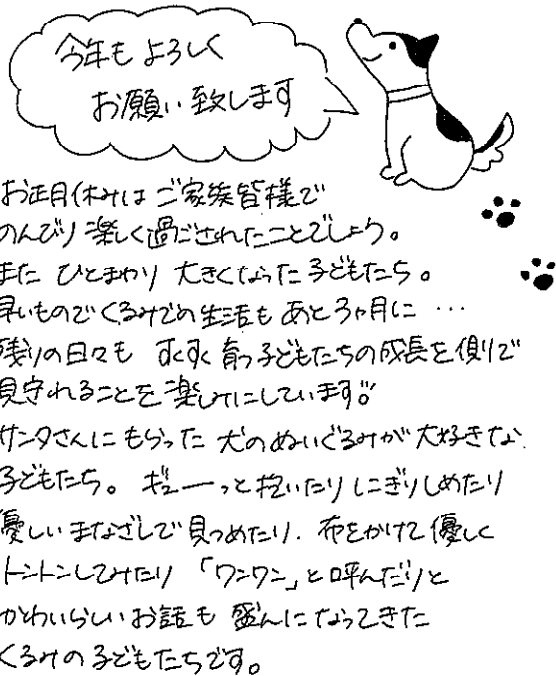 今年もよろしく
お願い致します
お正月休みはご家族皆様で
のんびり楽しく過ごされたことでしょう。
また ひとまわり 大きくなった子どもたち。
早いものでくるみでの生活も あと3ヶ月に…
残りの日々も すくすく育つ子どもたちの成長を側りで
見守れることを楽しみにしています。
サンタさんにもらった 犬のぬいぐるみが大好きな
子どもたち。ギューっと抱いたりにぎりしめたり
優しいまなざしで見つめたり、布をかけて優しく
トントンしてみたり「ワンワン」と呼んだりと
かわいらしいお話も盛んになってきた
くるみの子どもたちです。